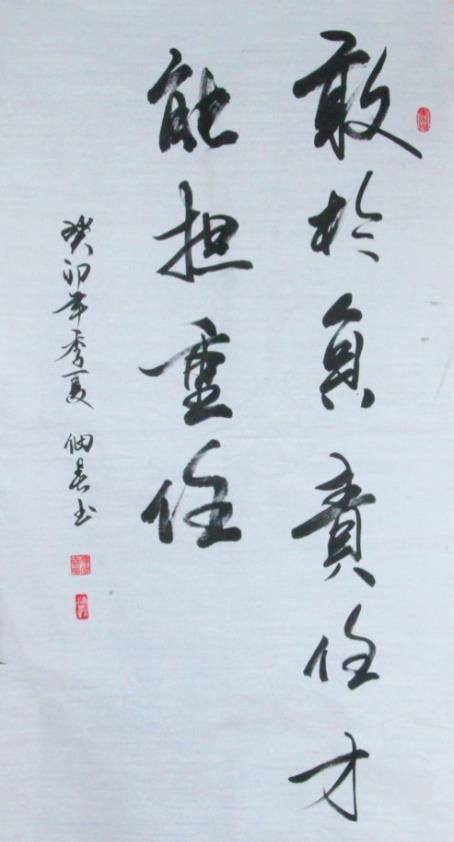 敢於負責任才
能担重任
癸卯年季夏 佃春书